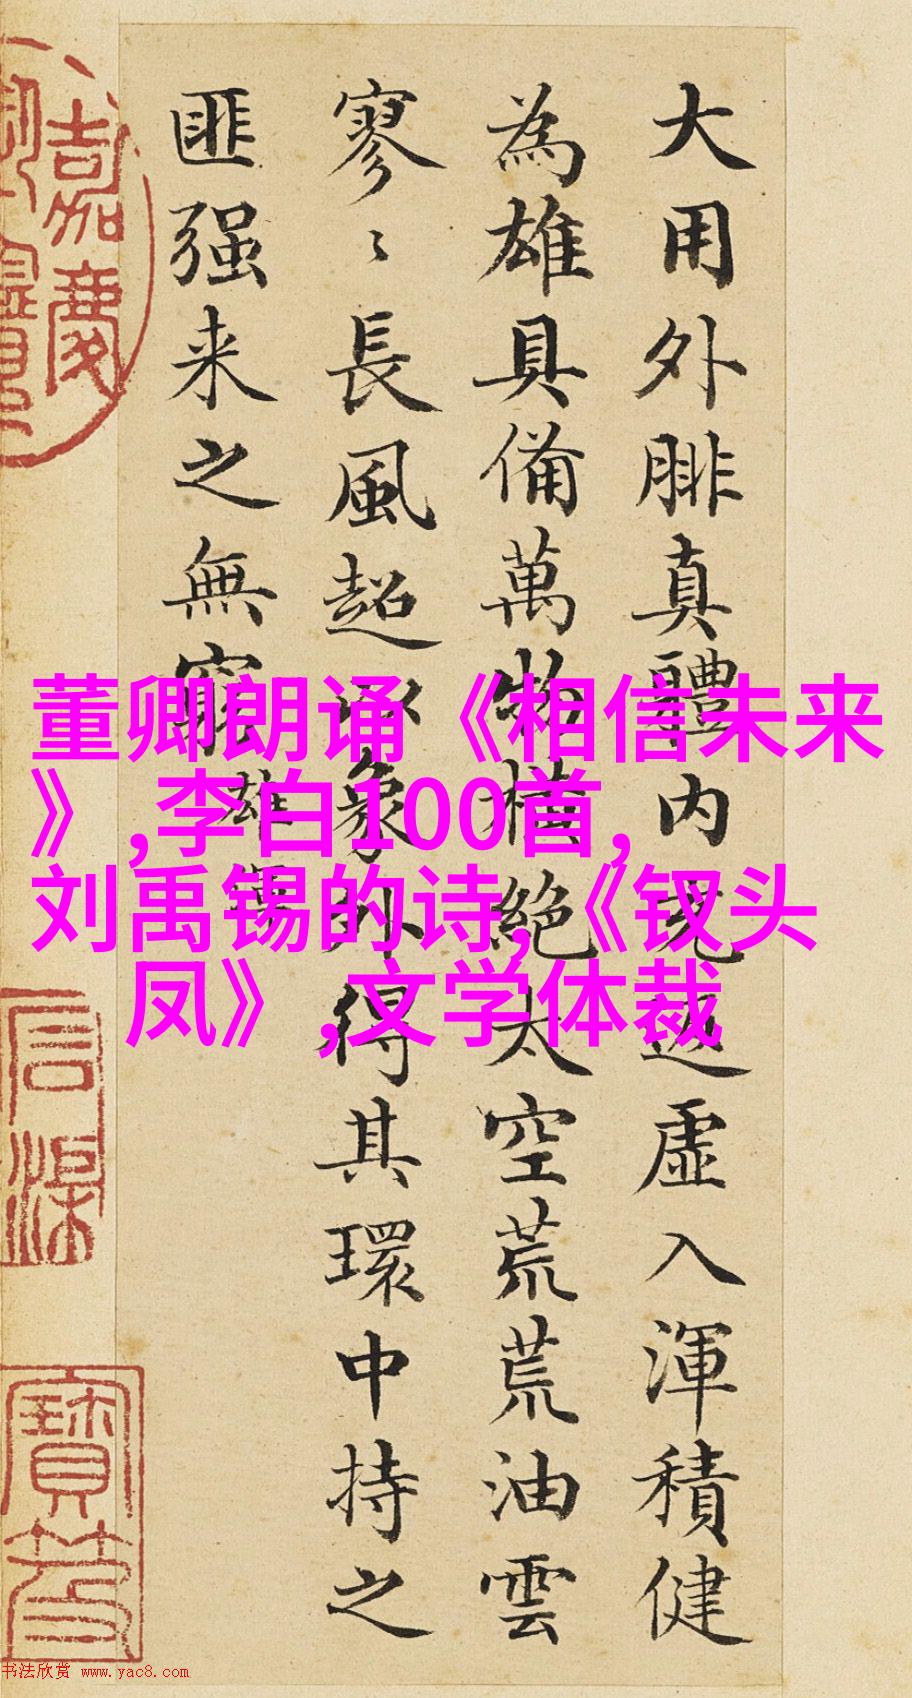 大用外腓真體内充返虛入渾積健
為雄具備萬物橫絕太空荒荒油雲
寥〻長風超以象外得其環中持之
匪强来之無窮
雄渾
董卿朗诵《相信未来
》,李白100首,
刘禹锡的诗,《钗头
凤》,文学体裁
嘉慶
寶笈
书法欣赏 www.yac8.com